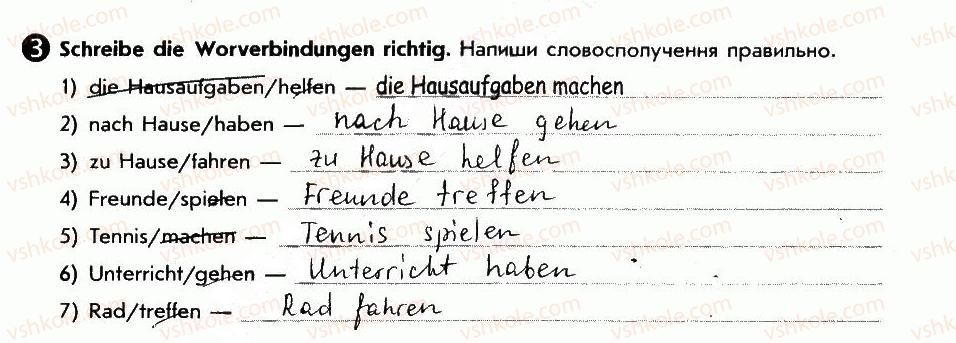 3 Schreibe die Worverbindungen richtig. Напиши словосполучення правильно.
1) die Hausaufgaben/helfen — die Hausaufgaben machen
2) nach Hause/haben — nach Hause gehen
3) zu Hause/fahren — zu Hause helfen
4) Freunde/spielen — Freunde treffen
5) Tennis/machen — Tennis spielen
6) Unterricht/gehen — Unterricht haben
7) Rad/treffen — Rad fahren